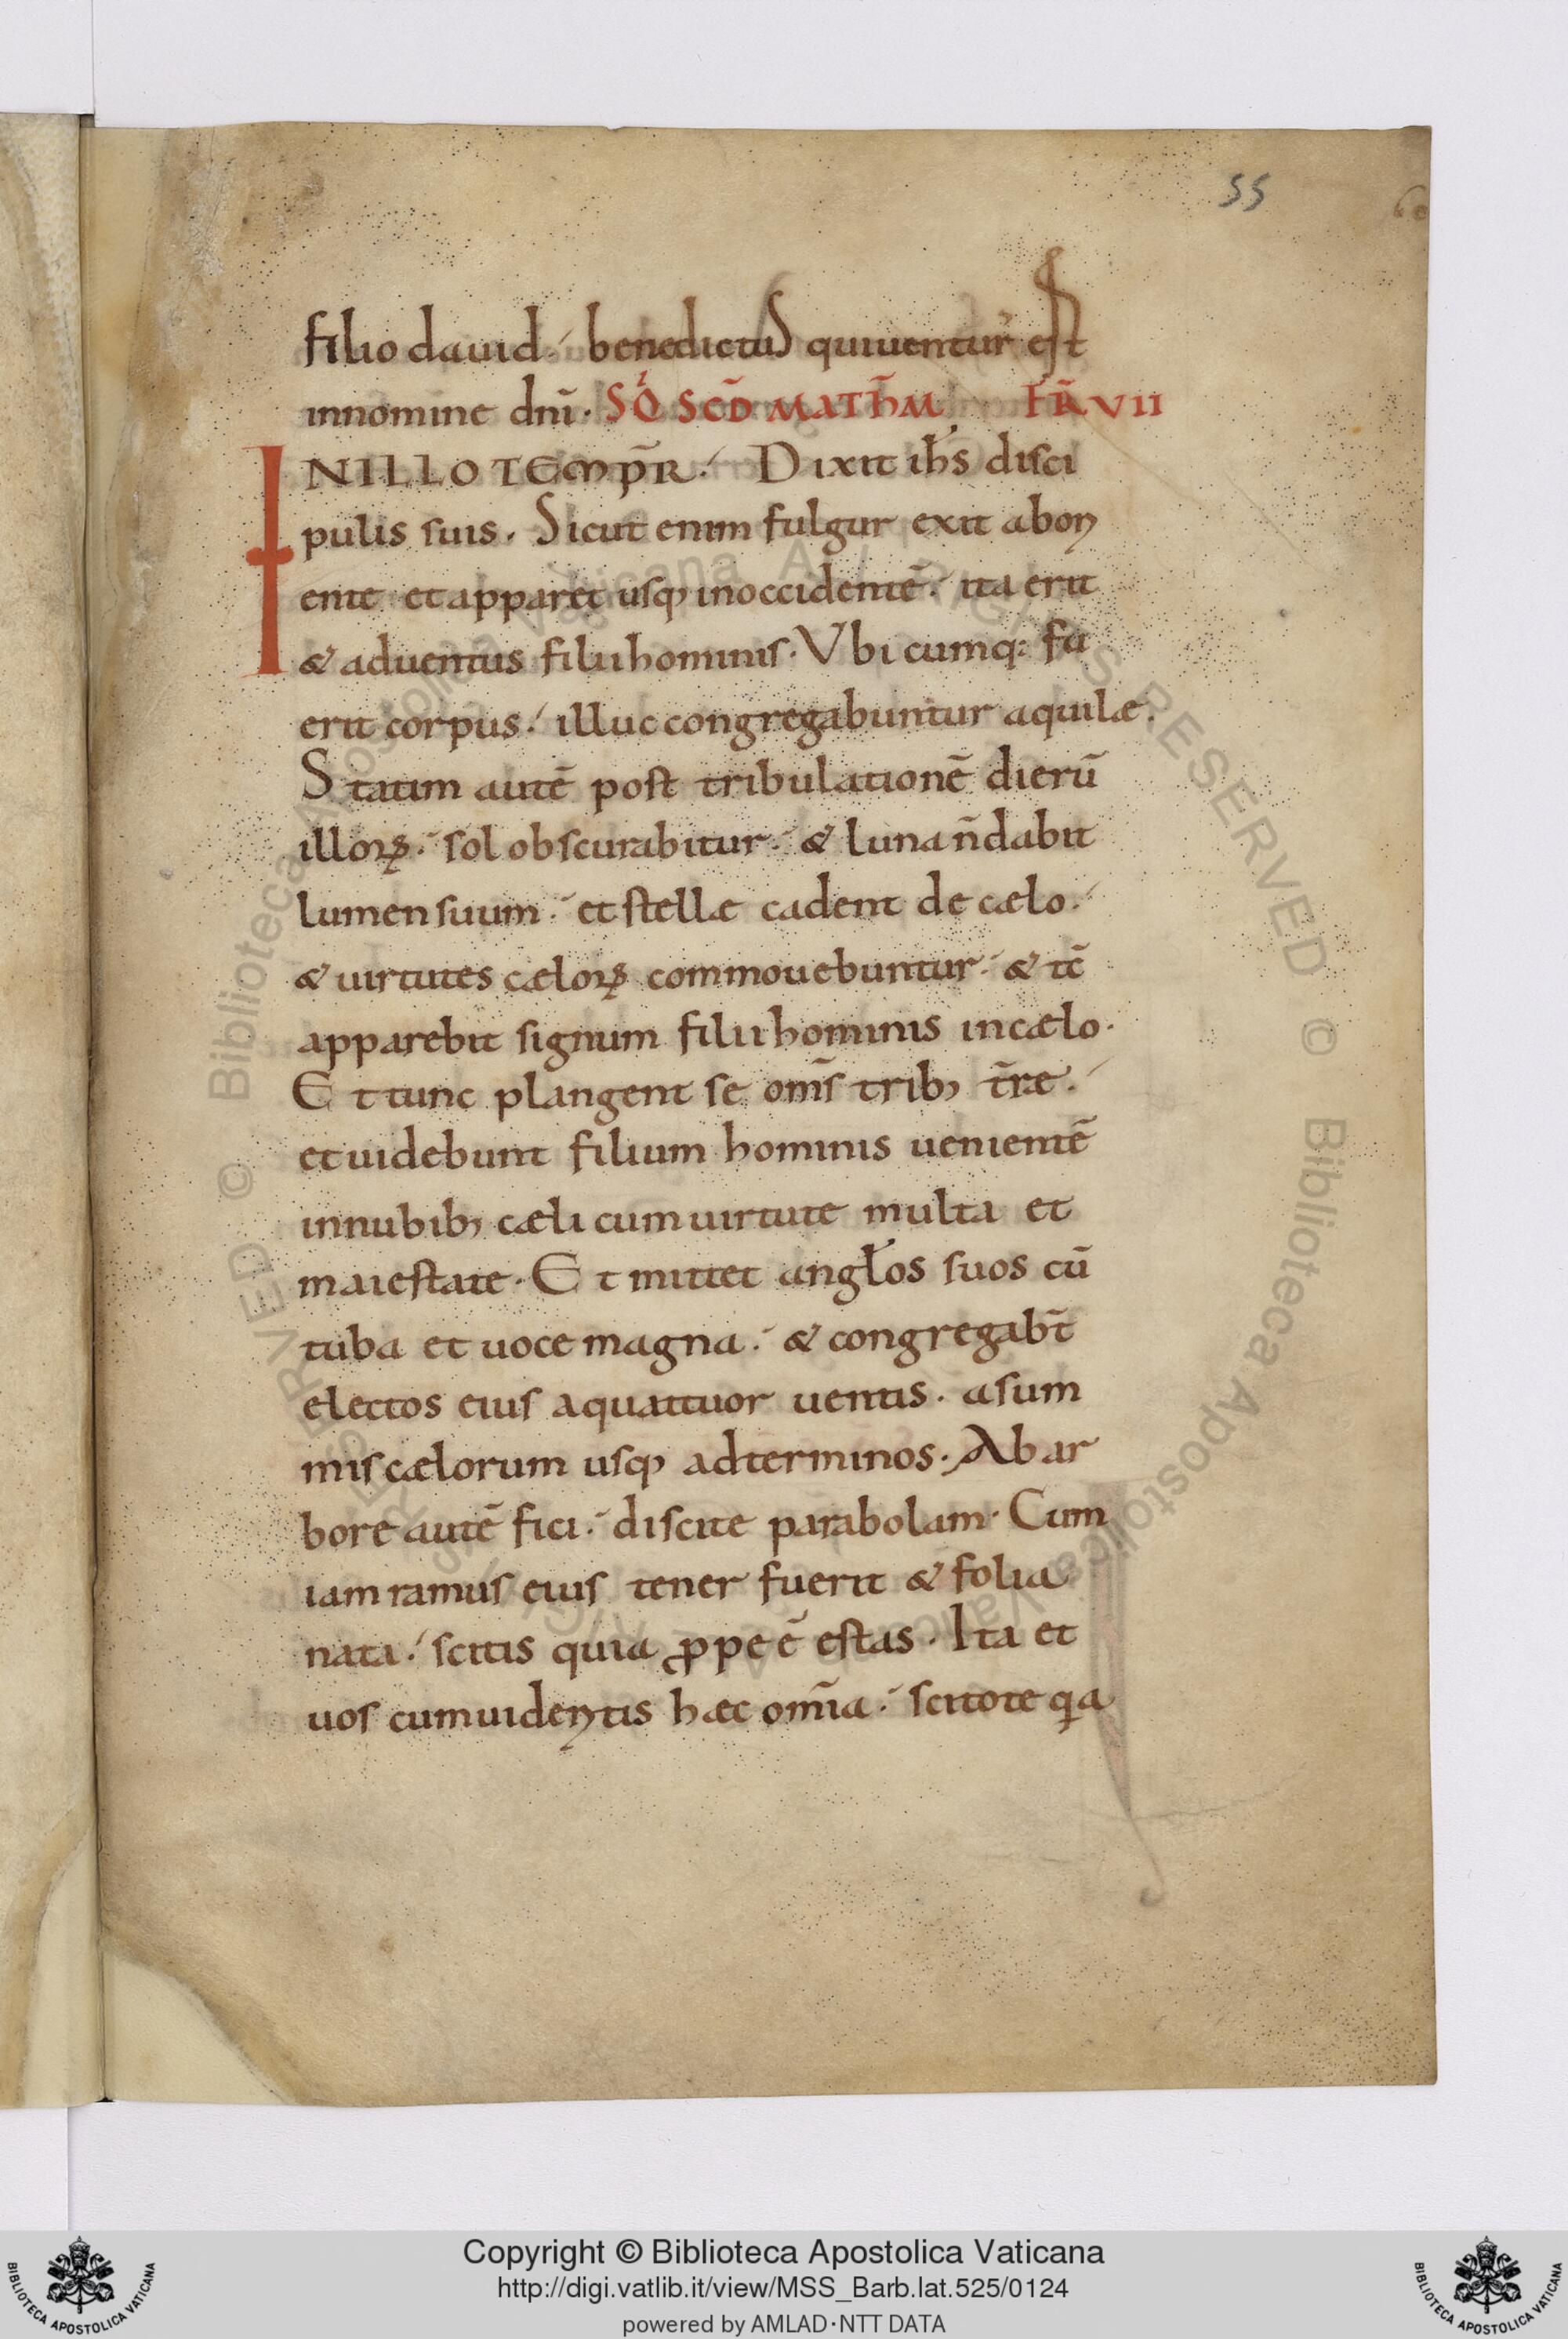 55
60
filio dauid. benedictus qui uentur' est
in nomine dnī. SQ̄ SCD̄ MATH̄M FR̄ VII
IN ILLO TEMPR̄. Dixit ih̄s disci
pulis suis. Sicut enim fulgur exit ab ori
ente et apparet usq; in occidentē. ita erit
& aduentus filii hominis. Vbi cumq: fu
erit corpus. illuc congregabuntur aquilæ.
Statim autē post tribulationē dierū
illorꝝ. sol obscurabitur. & luna n̄ dabit
lumen suum. et stellæ cadent de cælo.
& uirtutes cælorꝝ commouebuntur. & tc̄
apparebit signum filii hominis in cælo.
Et tunc plangent se om̄s trib; t̄ræ.
et uidebunt filium hominis uenientē
in nubib; cæli cum uirtute multa et
maiestate. Et mittet angl̄os suos cū
tuba et uoce magna. & congregabt̄
electos eius a quattuor uentis. a sum
mis cælorum usq; ad terminos. Ab ar
bore autē fici. discite parabolam. Cum
iam ramus eius tener fuerit & folia
nata. scitis quia ꝓpe ē estas. Ita et
uos cum uidentis hæc om̄ia. scitote qa
© Biblioteca Apostolica Vaticana ALL RIGHTS RESERVED
© Biblioteca Apostolica Vaticana ALL RIGHTS RESERVED
BIBLIOTECA APOSTOLICA VATICANA
Copyright © Biblioteca Apostolica Vaticana
http://digi.vatlib.it/view/MSS_Barb.lat.525/0124
powered by AMLAD·NTT DATA
BIBLIOTECA APOSTOLICA VATICANA